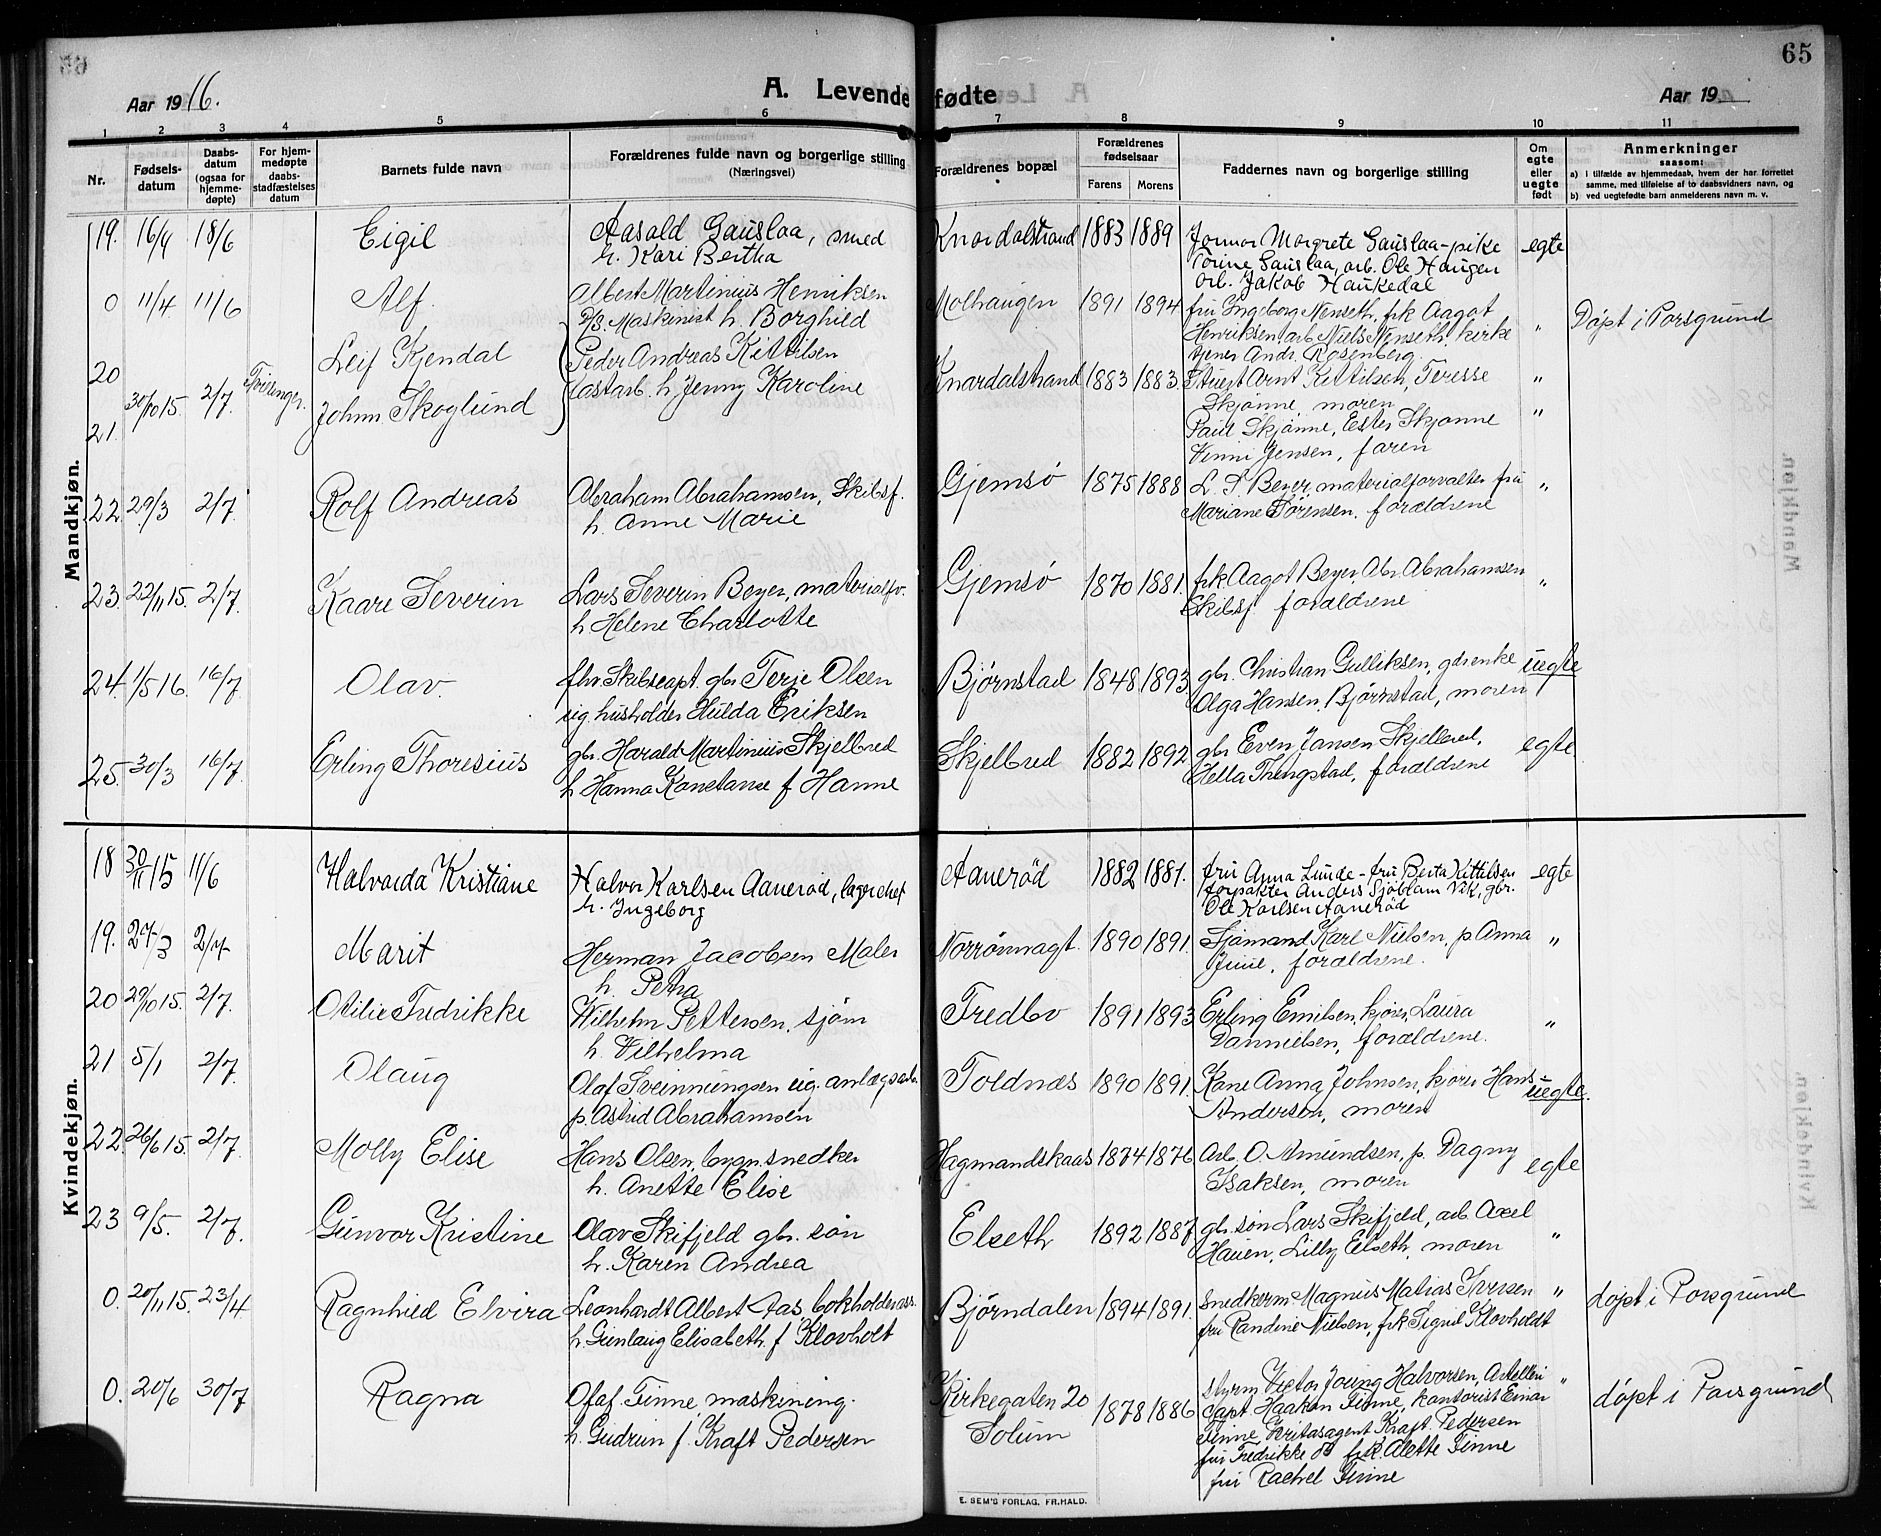 65
Aar 1916.
A. Levende fødte
Aar 19
1 2 3 4 5 6 7 8 9 10 11
Nr.
Fødsels-
datum
Daabs-
datum
(ogsaa for
hjemme-
døpte)
For hjem-
medøpte
daabs-
stadfæstelses
datum
Barnets fulde navn
Forældrenes fulde navn og borgerlige stilling
(Næringsvei)
Forældrenes bopæl
Forældrenes
fødselsaar
Farens Morens
Faddernes navn og borgerlige stilling
Om
egte
eller
uegte
født
Anmerkninger
saasom:
a) i tilfælde av hjemmedaab, hvem der har forrettet
samme, med tilføielse af to daabsvidners navn, og
b) ved uegtefødte barn anmelderens navn m. v.
Mandkjøn.
19. 16/4 18/6 Eigil Aasold Gauslaa, smed Knardalstrand 1883 1889 Jormor Margrete Gauslaa-pike egte
h. Kari Bertha Torine Gauslaa, arb. Ole Haugen
arb. Jakob Haukedal
0 11/4 11/6 Alf. Albert Martinius Henriksen Molhaugen 1891 1894 fru Ingeborg Nenseth, frk Aagot " Døpt i Porsgrund
D/S. Maskinist h. Borghild Henriksen arb Niels Nenseth, kirke
tjener Andr. Rosenberg.
20 30/10 15. 2/7. Tvillinger. Leif Kjendal Peder Andreas Kittilsen Knardalstrand 1883 1883. Stuert Arnt Kittilsen, Teresse "
Lastarb. h. Jenny Karoline Skjønne, moren
21. Johnn Skoglund Paul Skjønne, Ester Skjønne "
Vinni Jensen, faren
22. 29/3 2/7. Rolf Andreas Abraham Abrahamsen, Skibsf. Gjemsø 1875 1888 L. S. Beyer, materialforvalter fru "
h. Anne Marie Mariane Sørensen. forældrene
23. 22/11 15. 2/7. Kaare Severin Lars Severin Beyer, materialfv. Gjemsø 1870 1881. frk Aagot Beyer Abr. Abrahamsen "
h. Helene Charlotte Skibsf. forældrene
24. 1/5 16. 16/7 Olav. fhv. Skibscapt. gbr Terje Olsen Bjørnstad 1848 1893 gbr. Christian Gulliksen, gdr enke uegte
ug. husholder Hulda Eriksen Olga Hansen, Bjørnstad, moren
25. 30/3 16/7. Erling Thoresius gbr. Harald Martinius Skjelbred Skjelbred 1882 1892 gbr Even Jansen Skjelbred, egte.
h Hanna Konstanse f Hanne Hella Thingstad, forældrene
Kvindekjøn.
18 30/11 15 11/6 Halvarda Kristiane Halvor Karlsen Aanerød, lagerchef Aanerød 1882 1881. fru Anna Lunde - fru Berta Kittilsen egte
h. Ingeborg forpakter Anders Sjöblom Vik, gbr.
Ole Karlsen Aanerød
19. 27/3 2/7 Marit Herman Jacobsen Maler Norrønvagt. 1890 1891. Sjømand Karl Nielsen, p. Anna "
h. Petra Juul, forældrene.
20 29/10 15. 2/7. Otilie Fredrikke Wilhelm Pettersen, sjøm Fredbo 1891 1893 Erling Emilsen, kjører, Laura "
h. Vilhelma Dannielsen, forældrene.
21 5/1 2/7. Olaug Olaf Sveinnungsen ug. anlægsarb. Toldnæs 1890 1891. Kone Anna Johnsen, kjører Hans uegte.
p. Astrid Abrahamsen Andersen, moren
22. 26/6 15. 2/7. Molly Elise Hans Olsen, bygn.snedker Hagmandskaas 1874 1876 Arb. O. Amundsen, p. Dagny egte
h. Anette Elise Isaksen, moren
23 9/5. 2/7. Gunvor Kristine Olav Skifjeld gbr. søn Elseth 1892 1887. gbr. søn Lars Skifjeld, arb. Axel "
h. Karen Andrea Hauen, Lilly Elseth, moren
0. 20/11 15. 23/4 Ragnhild Elvira Leonhardt Albert Aas bokholderass. Bjørndalen 1894 1891. Snedkerm. Magnus Matias Iversen " døpt i Porsgrund
h. Gunlaug Elisabeth f. Klovholt fru Randine Nielsen, frk Signil Klovholdt
0. 20/6 30/7 Ragna Olaf Finne maskining. Kirkegaten 20 1878 1886 styrm Victor Joung Halvorsen, Artilleri " døpt i Porsgrund
h. Gudrun f. Kraft Pedersen Solum capt Haakon Finne, kontorist Einar
Finne, Kraft Pedersen
fru Fredrikke do frk. Alette Finne
fru Rachel Finne
E. SEM'S FORLAG, FR.HALD.